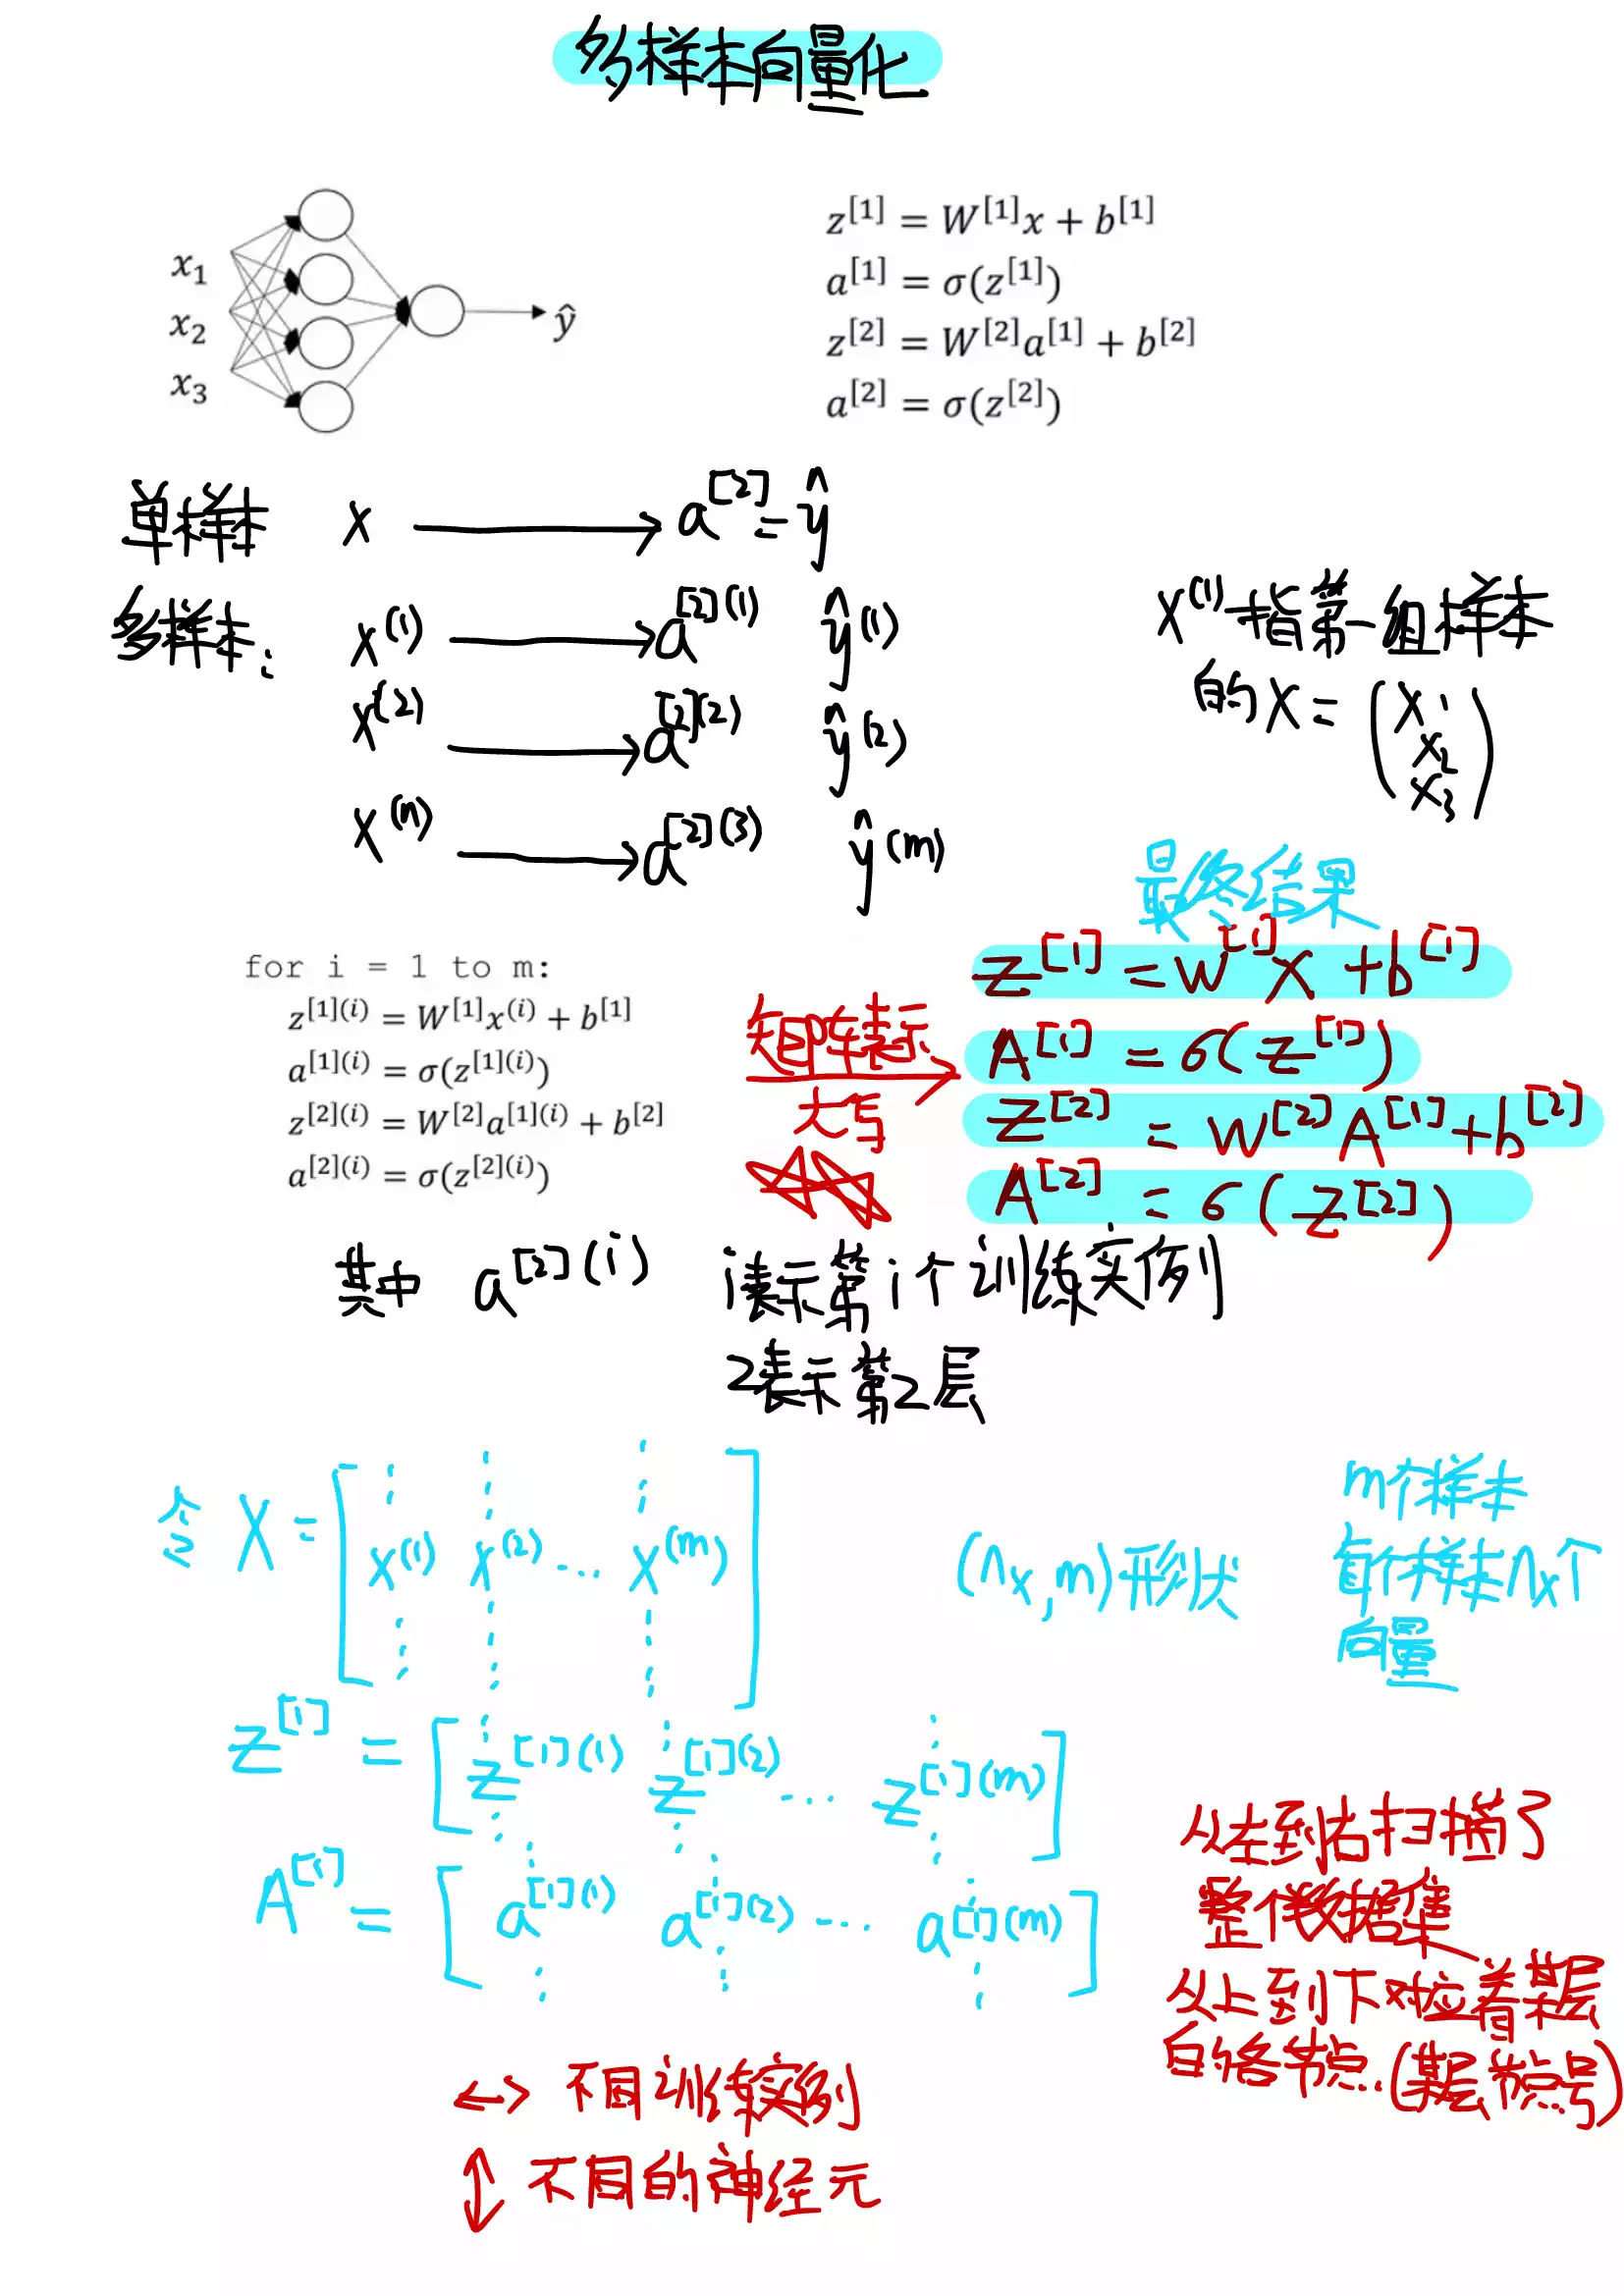 多样本向量化
x₁
x₂
x₃
ŷ
z^[1] = W^[1]x + b^[1]
a^[1] = σ(z^[1])
z^[2] = W^[2]a^[1] + b^[2]
a^[2] = σ(z^[2])
单样本 x → a^[2] = ŷ
多样本: x^(1) → a^[2](1) ŷ^(1)
x^(2) → a^[2](2) ŷ^(2)
x^(n) → a^[2](3) ŷ^(m)
x^(1)指第一组样本
的X = (x₁
x₂
x₃)
for i = 1 to m:
z^[1](i) = W^[1]x^(i) + b^[1]
a^[1](i) = σ(z^[1](i))
z^[2](i) = W^[2]a^[1](i) + b^[2]
a^[2](i) = σ(z^[2](i))
矩阵表示
大写
最终结果
Z^[1] = W^[1]X + b^[1]
A^[1] = σ(Z^[1])
Z^[2] = W^[2]A^[1] + b^[2]
A^[2] = σ(Z^[2])
其中 a^[2](i) i表示第i个训练实例
2表示第2层
令 X = [x^(1) x^(2) ... x^(m)]
(nx, m)形状
m个样本
每个样本nx个
向量
Z^[1] = [z^[1](1) z^[1](2) ... z^[1](m)]
A^[1] = [a^[1](1) a^[1](2) ... a^[1](m)]
从左到右扫描了
整个数据集
从上到下对应着某层
的各节点.(某层节点号)
↔ 不同训练实例
↕ 不同的神经元